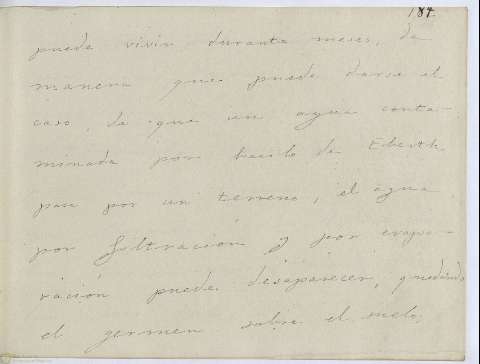 184
puede vivir durante meses, de
manera que puede darse el
caso, de que un agua conta-
minada por bacilo de Eberth
pase por un terreno, el agua
por filtración y por evapo-
ración puede desaparecer, quedando
el germen sobre el suelo.